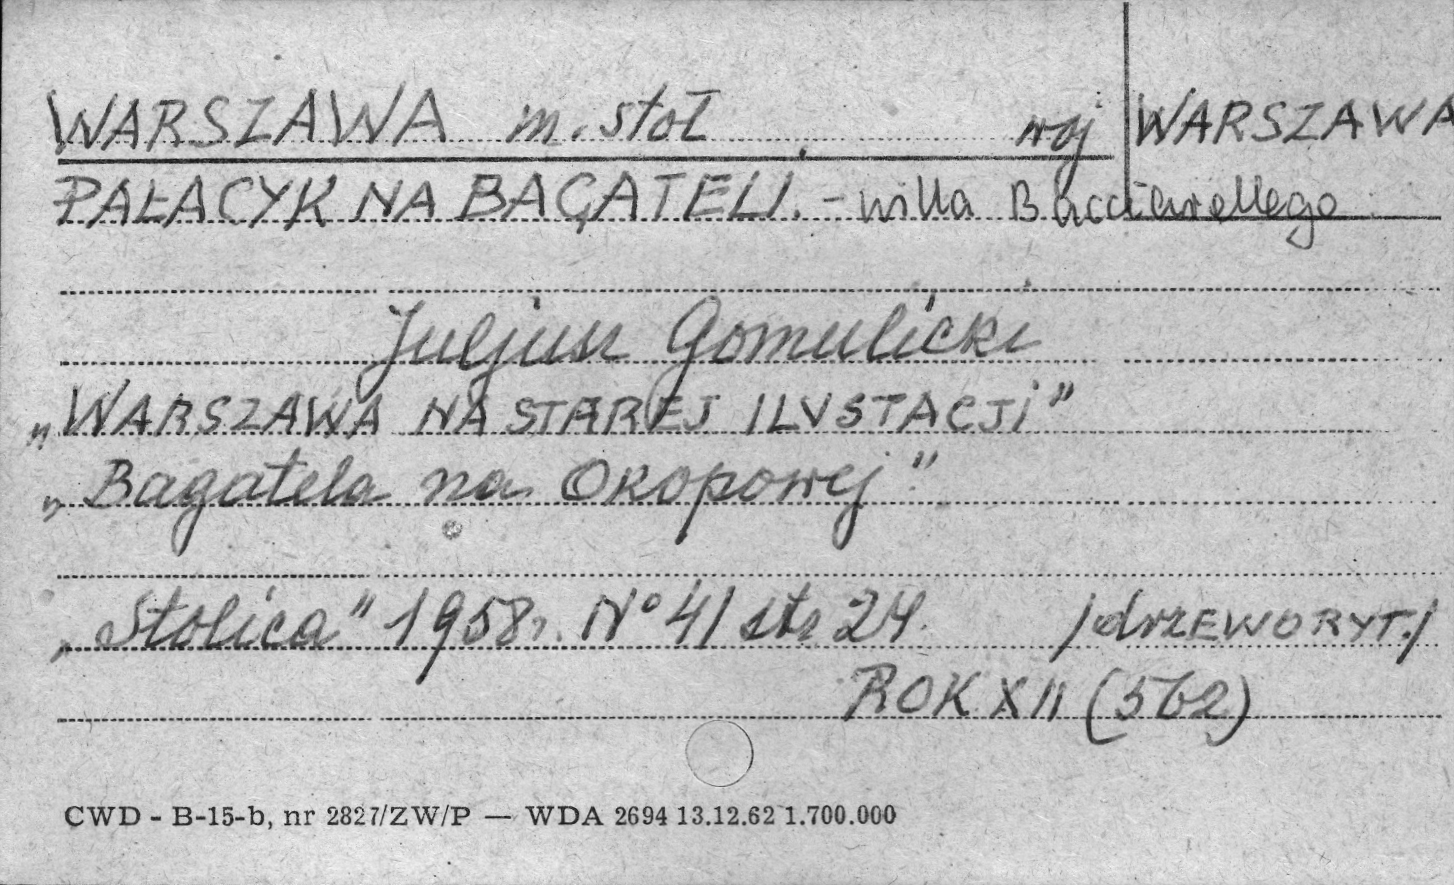 WARSZAWA m. stoł woj WARSZAWA
PAŁACYK NA BAGATELI. - willa Bacciarellego
Juljusz Gomulicki
„WARSZAWA NA STAREJ ILUSTACJi”
„Bagatela na Okopowej”
„Stolica” 1958r. N° 41 str 24. /drzEWORYT./
ROK XII (562)
CWD - B-15-b, nr 2827/ZW/P — WDA 2694 13.12.62 1.700.000